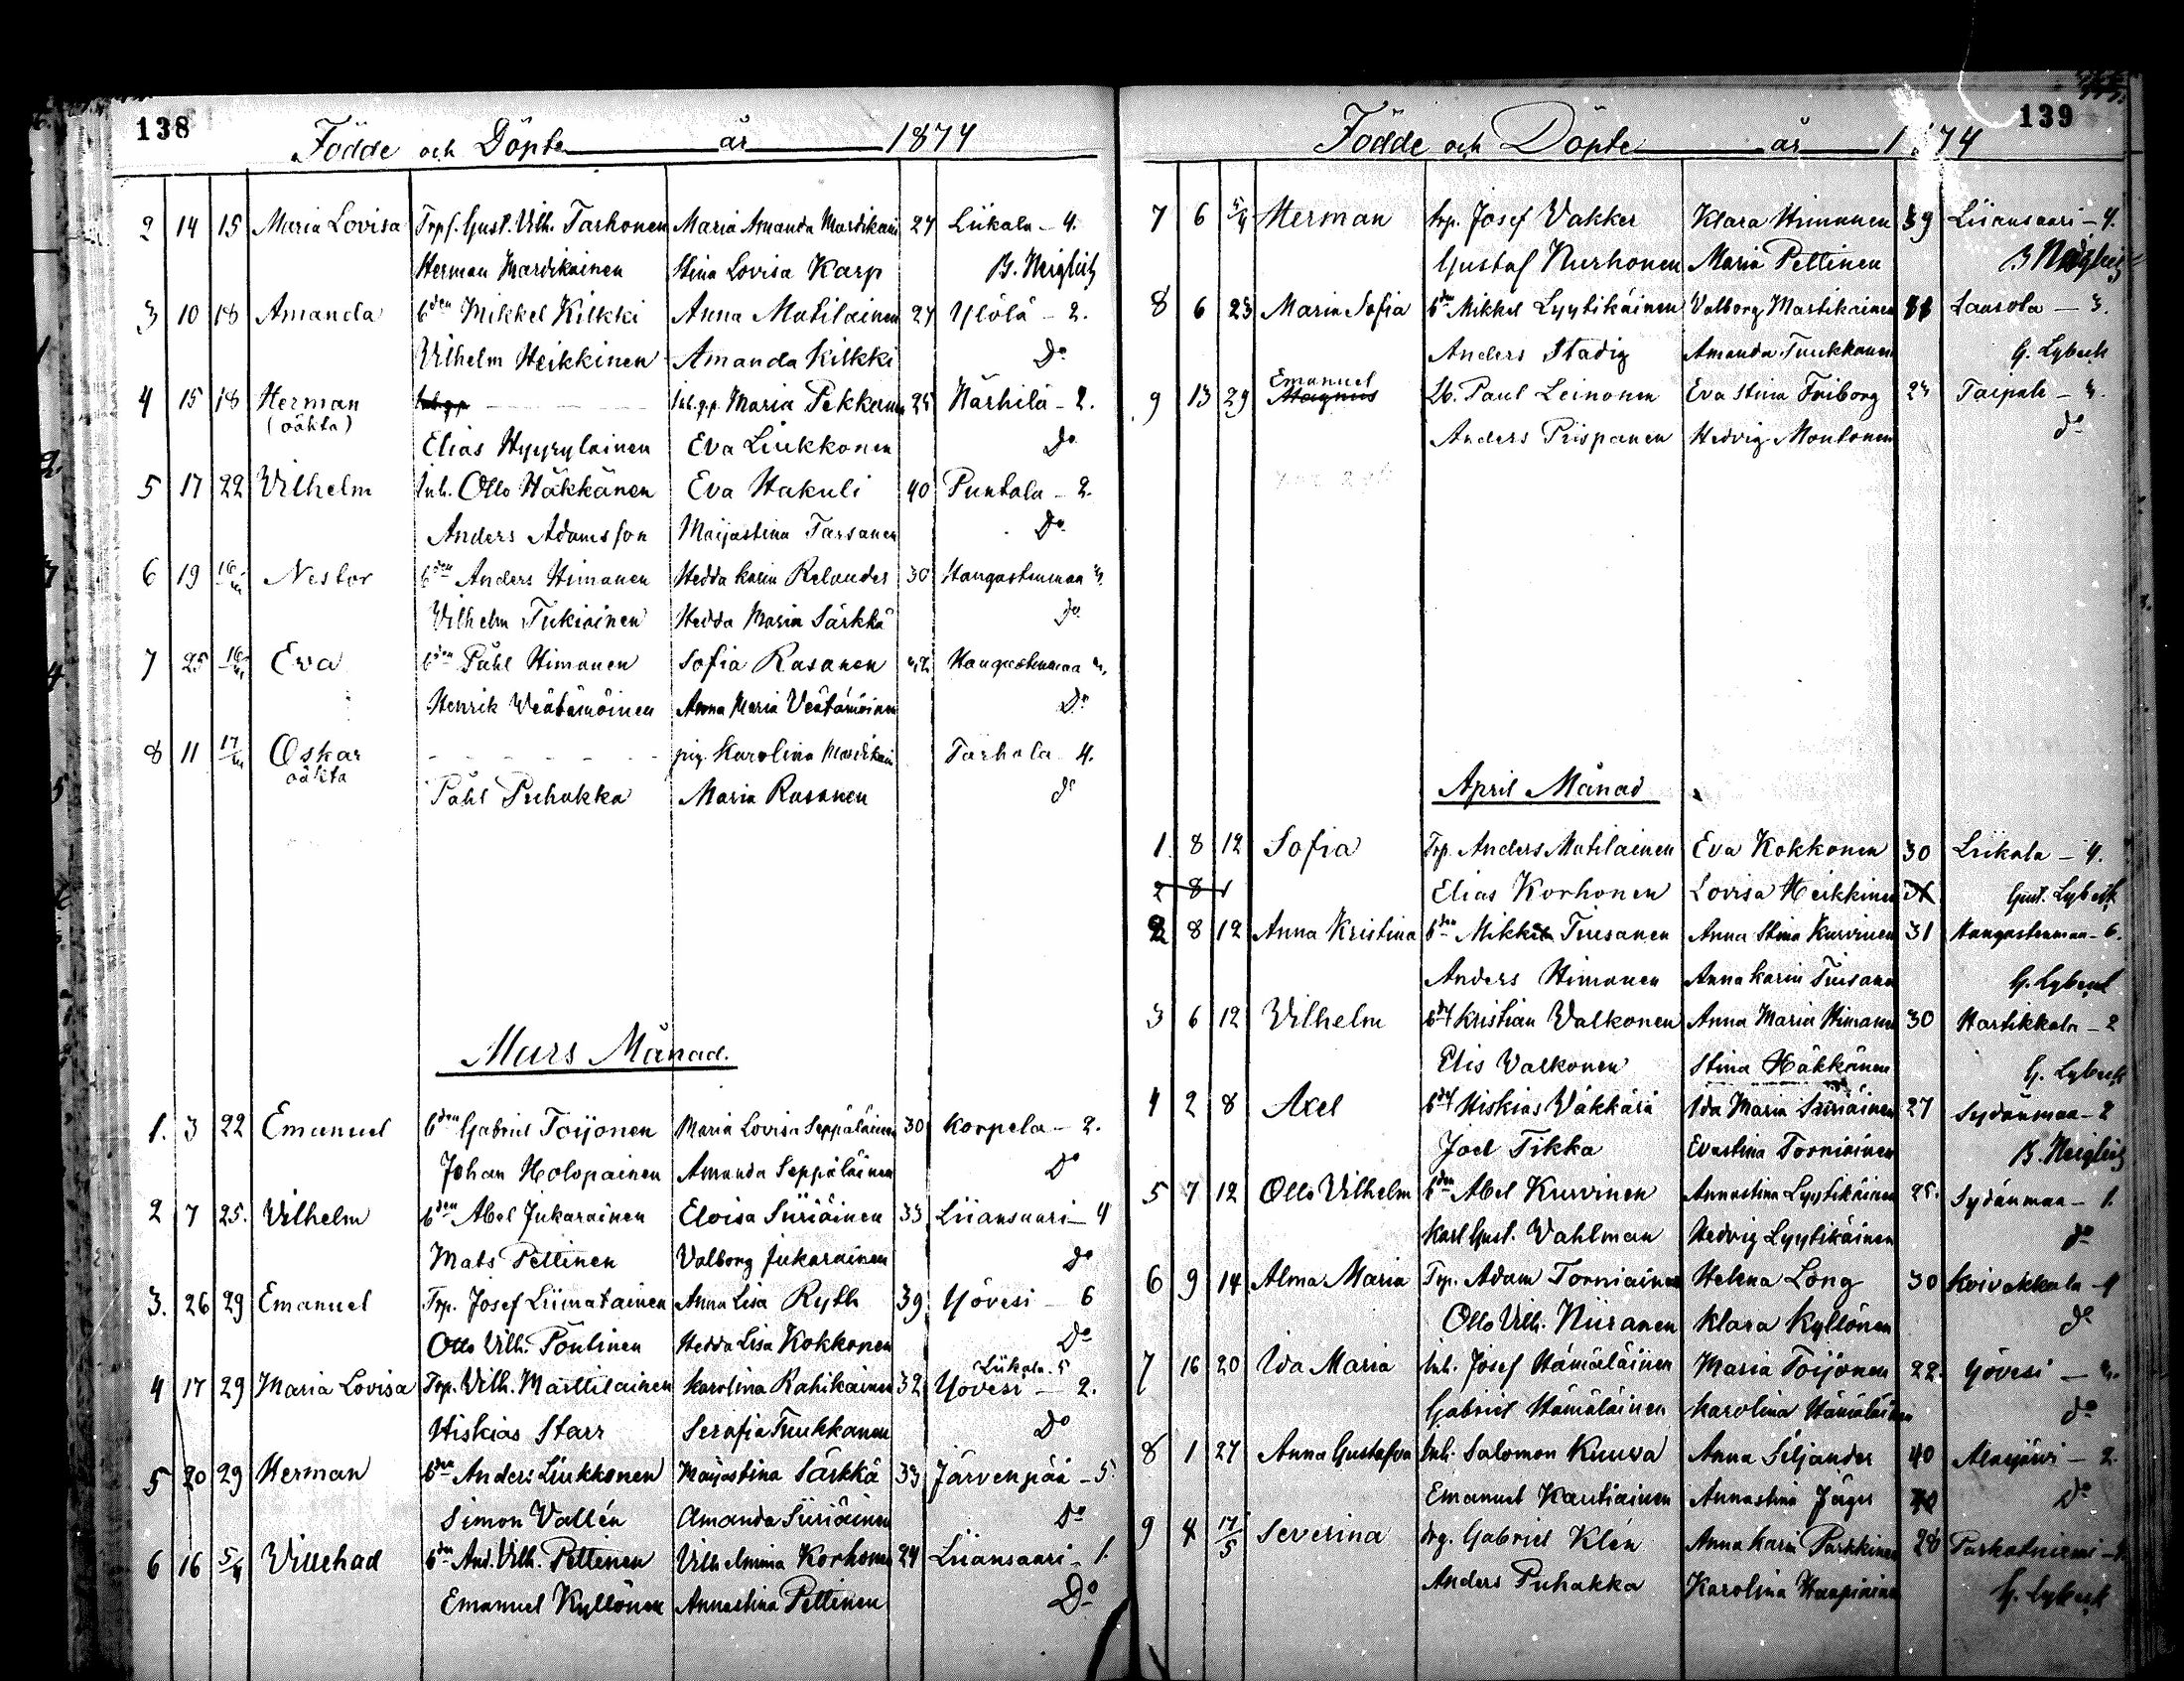 138
Födde och Döpte år 1874
2 14 15 Maria Lovisa Trpf. Gust. Vilh. Tarhonen Maria Amanda Mardikain 27 Liikala - 4.
Herman Mardikainen Stina Lovisa Karp B. Neiglick
3 10 18 Amanda bden Mikkel Kilkki Anna Matilainen 27 Ylölä - 2.
Vilhelm Heikkinen Amanda Kilkki Do
4 15 18 Herman Inh. g.p. Maria Pekkanen 25 Närhilä - 2.
(oäkta)
Elias Hyyrylainen Eva Liukkonen Do
5 17 22 Vilhelm Inh. Otto Häkkänen Eva Hakuli 40 Puntala - 2.
Anders Adamsson Maijastina Tarsanen Do
6 19 Nestor bden Anders Himanen Hedda Karin Relander 30 Hangastenmaa
Vilhelm Tukiainen Hedda Maria Särkkä do
7 25 Eva bden Påhl Himanen Sofia Rasanen 42 Hangastenmaa
Henrik Weätämöinen Anna Maria Veätämöinen Do
8 11 Oskar pig. Karolina Mardikain Tarhala 4.
oäkta
Påhl Puhakka Maria Rasanen do
Mars Månad.
1. 3 22 Emanuel bden Gabriel Toijonen Maria Lovisa Seppäläinen 30 Korpela - 2.
Johan Holopainen Amanda Seppäläinen Do
2 7 25. Vilhelm bden Abel Jukarainen Eloisa Siiriäinen 33 Liiansaari - 4
Mats Pettinen Valborg Jukarainen do
3. 26 29 Emanuel Trp. Josef Liimatainen Anna Lisa Ryth 39 Yövesi - 6
Otto Vilh. Pöntinen Hedda Lisa Kokkonen Do
Liikala. 5
4 17 29 Maria Lovisa Trp. Vilh. Marttilainen Karolina Rahikainen 32 Yövesi - 2.
Hiskias Starr Serafia Tuukkanen Do
5 20 29 Herman bden Anders Liukkonen Maijastina Särkkä 33 Järvenpää - 5.
Simon Vallén Amanda Siiriäinen Do
6 16 5/4 Villehad bden And. Vilh. Pettinen Vilhelmina Korhonen 24 Liiansaari - 1.
Emanuel Kyllönen Annastina Pettinen Do
139
Födde och Döpte år 1874
7 6 5/4 Herman trp. Josef Vakker Klara Himanen 39 Liiansaari - 4.
Gustaf Nurhonen Maria Pettinen B Neiglick
8 6 23 Maria Sofia bden Mikkel Lyytikäinen Valborg Martikainen Laurola - 3.
Anders Stadig Amanda Tuukkanen G. Lybeck
Emanuel
9 13 29 Magnus Lb. Paul Leinonen Eva Stina Friborg Taipale
Anders Prispanen Hedvig Montonen do
April Månad
1. 8 12 Sofia Trp. Anders Matilainen Eva Kokkonen 30 Liikala - 4.
2 8 Elias Korhonen Lovisa Heikkinen Gust. Lybeck
2 8 12 Anna Kristina bden Mikkel Tiusanen Anna Stina Kurvinen 31 Hangastenmaa - 6.
Anders Himanen Anna Karin Tiusanen G. Lybeck
3 6 12 Vilhelm Kristian Valkonen Anna Maria Himanen 30 Hartikkala - 2
Elis Valkonen Stina Häkkänen G. Lybeck
4 2 8 Axel Hiskias Väkkärä Ida Maria Siiriäinen 27 Sydänmaa - 2
Joel Tikka Evastina Torniainen B. Neiglick
5 7 12 Otto Vilhelm bden Abel Kurvinen Annastina Lyytikäinen 25. Sydänmaa - 1.
Karl Gust. Vahlman Hedvig Lyytikäinen do
6 9 14 Alma Maria Trp. Adam Torniainen Helena Long 30 Koivakkala - 1
Otto Vilh. Niiranen Klara Kyllönen do
7 16 20 Ida Maria Inh. Josef Hämäläinen Maria Toijonen 22. Yövesi
Gabriel Hämäläinen Karolina Hämäläinen do
8 1 27 Anna Gustafva Inh. Salomon Kuuva Anna Siljander 40 Alaijärvi - 2.
Emanuel Kautiainen Annastina Jäger Do
9 4 17/5 Severina drg. Gabriel Klén Anna Karin Parkkinen 28 Parkatniemi
Anders Puhakka Karolina Haapiainen G. Lybeck